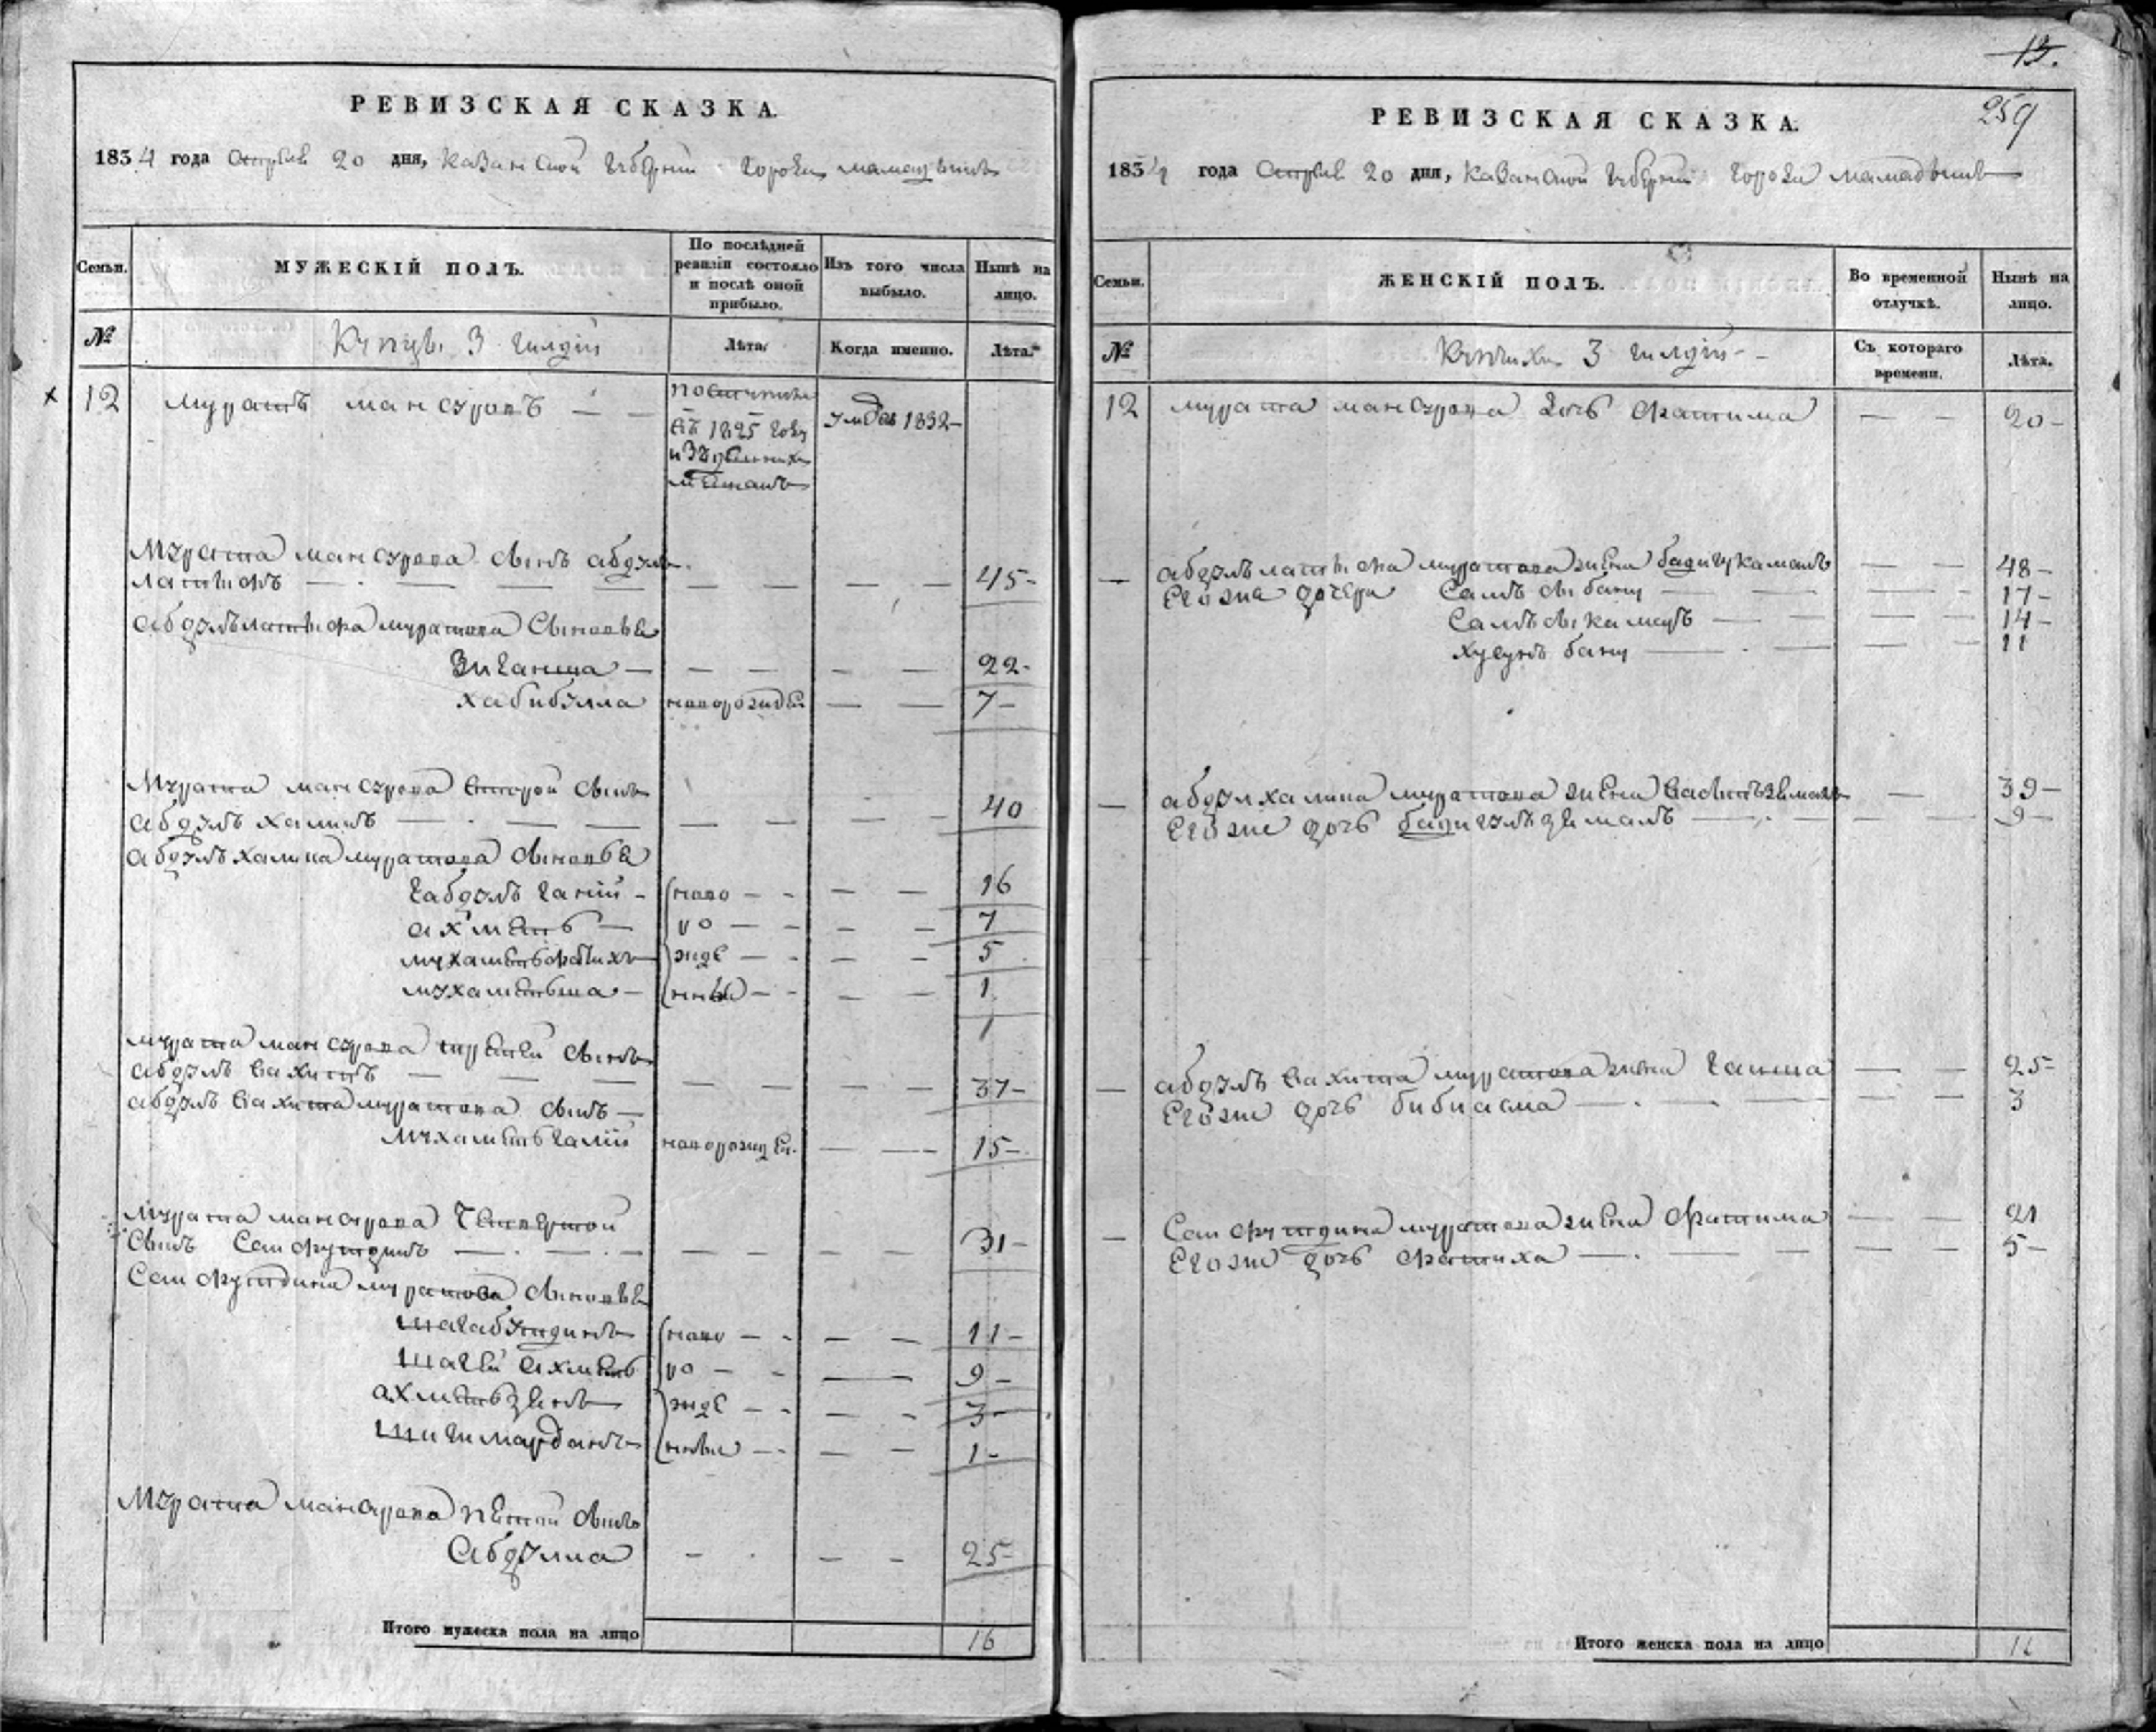 РЕВИЗСКАЯ СКАЗКА.
1834 года 20 дня, Казанской Губернии Города Мамадыша
Семьи.
МУЖЕСКІЙ ПОЛЪ.
По послѣдней ревизіи состояло и послѣ оной прибыло.
Изъ того числа выбыло.
Нынѣ на лицо.
№
Купцы 3 гилдіи
Лѣта.
Когда именно.
Лѣта.
12 Муратъ Мансуровъ
въ 1825 году
умре 1832
Мурата Мансурова сынъ Абдулъ
латифъ 45
Абдулълатифа Муратова Сыновья
Зиганша 22
Хабибулла новорожден 7
Мурата Мансурова второй сынъ
Абдулъ Халикъ 40
Абдулъ Халика Муратова сыновья
Габдулъ Ганій ново 16
Ахметь ро 7
Мухаметьфатихъ жде 5
Мухаметьша нныи 1
1
Мурата Мансурова третей сынъ
Абдулъ Вахитъ 37
Абдулъ Вахита Муратова сынъ
Мухаметь Галій новорожден. 15
Мурата Мансурова Четвертой
сынъ Сайфутдинъ 31
Сайфутдина Муратова сыновья
Шагабутдинъ ново 11
Шагей Ахметь ро 9
Ахметьзянъ жде 3
Шигимарданъ нныи 1
Мурата Мансурова петой сынъ
Абдулла 25
Итого мужеска пола на лицо 16
13.
259
РЕВИЗСКАЯ СКАЗКА.
1834 года 20 дня, Казанской Губернии Города Мамадыша
Семьи.
ЖЕНСКІЙ ПОЛЪ.
Во временной отлучкѣ.
Нынѣ на лицо.
№
Купчихи 3 гилдіи
Съ котораго времени.
Лѣта.
12 Мурата Мансурова дочь Фатима 20
Абдулълатифа Муратова жена Бадигукамалъ 48
Его же дочери бану 17
14
бану 11
Абдулхалика Муратова жена 39
Его же дочь Бадигулъзямалъ 9
Абдулъ Вахита Муратова жена Ганша 25
Его же дочь Бибиасма 3
Сайфутдина Муратова жена Фатима 21
Его же дочь Фатиха 5
Итого женска пола на лицо